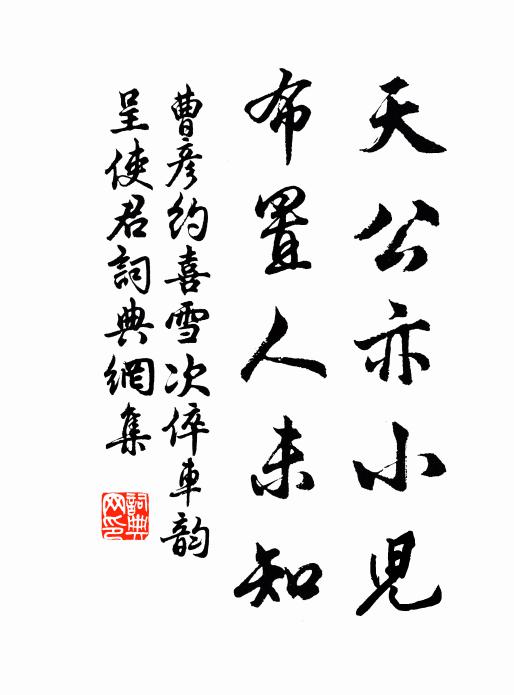 天公亦小児
布置人未知
曹彦約喜雪次倅車韵
呈使君詞典網集
詞典網印